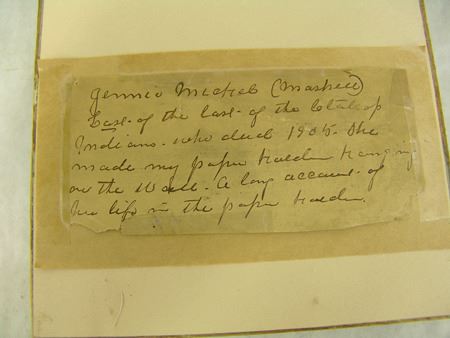 Jennie Michel
Last of the last of the Clatsop
Indians. who died 1905. She
made my paper holder hanging
on the wall. A long account of
her life in the paper holder.